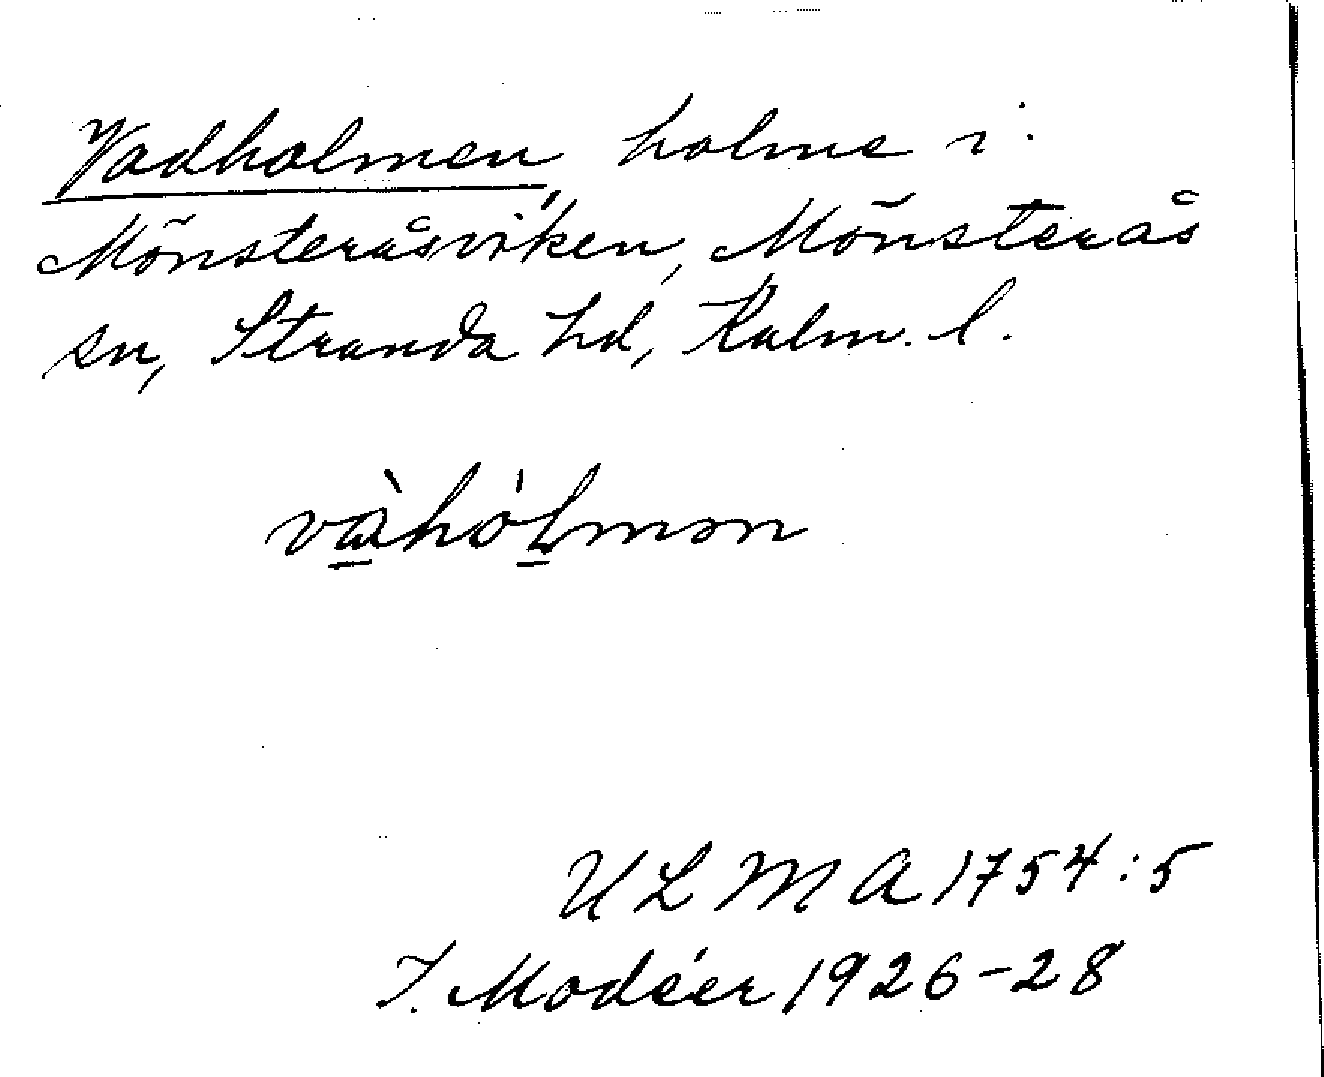 Vadholmen, holme i
Mönsteråsviken, Mönsterås
sn, Stranda hd, Kalm. l.
vàhólmən
ULMA 1754:5
I. Modéer 1926-28